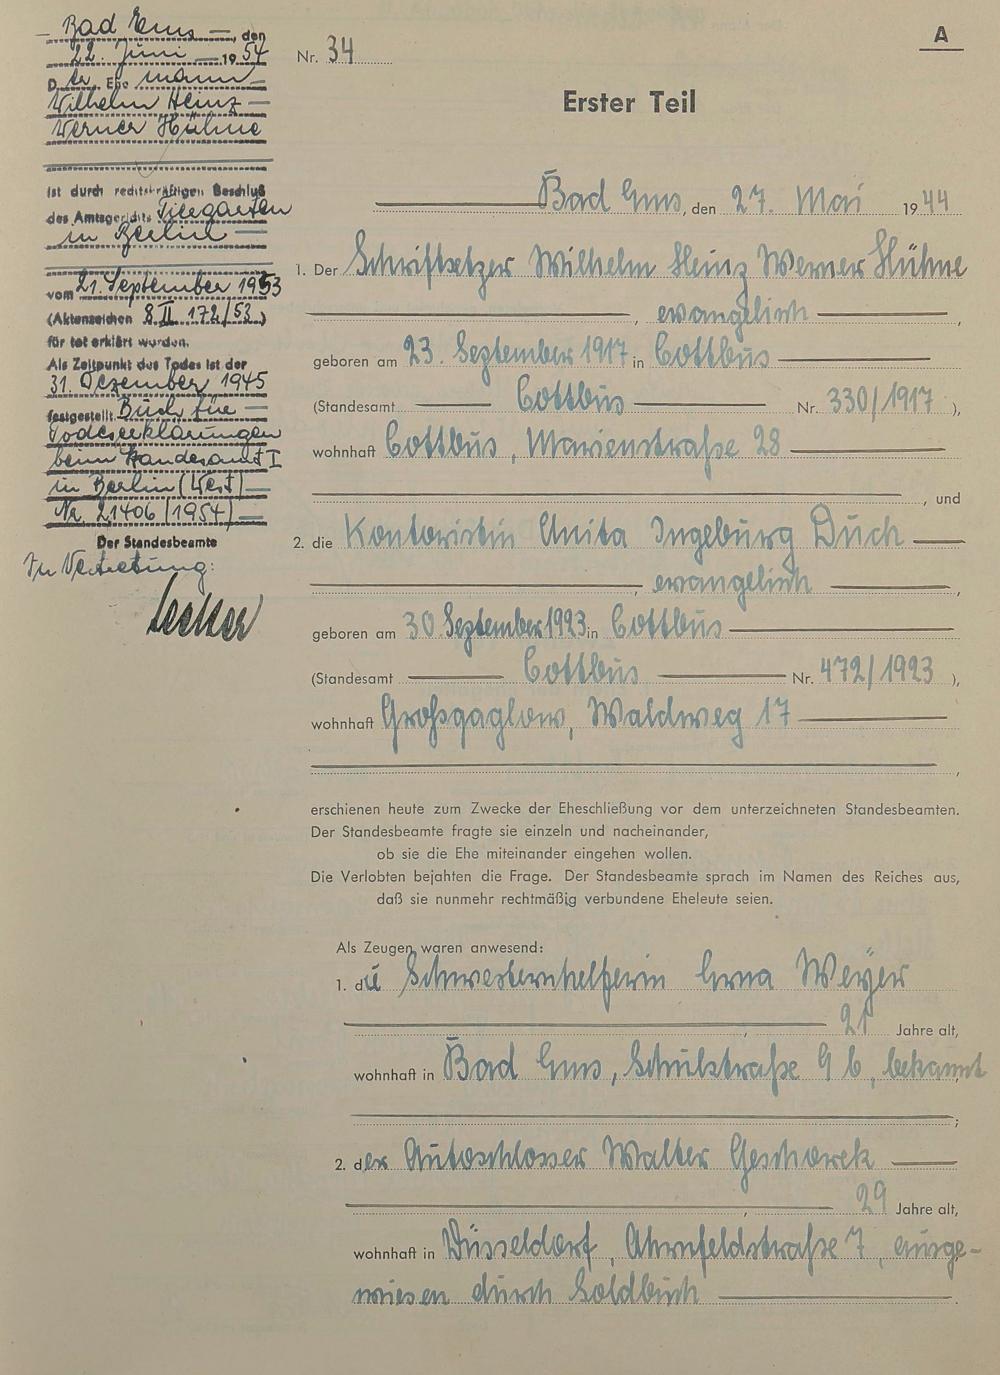 Bad Ems, den
22. Juni 1954
Der Ehemann
Wilhelm Heinz
Werner Hühne
ist durch rechtskräftigen Beschluß
des Amtsgerichts Tiergarten
in Berlin
vom 21. September 1953
(Aktenzeichen 8 II 172/53.)
für tot erklärt worden.
Als Zeitpunkt des Todes ist der
31. Dezember 1945
festgestellt. Buch für
Todeserklärungen
beim Standesamt I
in Berlin (West)
Nr. 21406/1954)
Der Standesbeamte
In Vertretung:
A
Nr. 34
Erster Teil
Bad Ems, den 27. Mai 1944
1. Der Schriftsetzer Wilhelm Heinz Werner Hühne
, evangelisch ,
geboren am 23. September 1917 in Cottbus
(Standesamt Cottbus Nr. 330/1917 ),
wohnhaft Cottbus, Marienstraße 28
, und
2. die Kontoristin Anita Ingeburg Duch
, evangelisch ,
geboren am 30. September 1923 in Cottbus
(Standesamt Cottbus Nr. 472/1923 ),
wohnhaft Großgaglow, Waldweg 17
,
erschienen heute zum Zwecke der Eheschließung vor dem unterzeichneten Standesbeamten.
Der Standesbeamte fragte sie einzeln und nacheinander,
ob sie die Ehe miteinander eingehen wollen.
Die Verlobten bejahten die Frage. Der Standesbeamte sprach im Namen des Reiches aus,
daß sie nunmehr rechtmäßig verbundene Eheleute seien.
Als Zeugen waren anwesend:
1. die Schwesternhelferin Erna Weyer
, 21 Jahre alt,
wohnhaft in Bad Ems, Schulstraße 9 b, bekannt
;
2. der Autoschlosser Walter Geschorek
, 29 Jahre alt,
wohnhaft in Düsseldorf, Ahrnfeldstraße 7, ausge-
wiesen durch Soldbuch